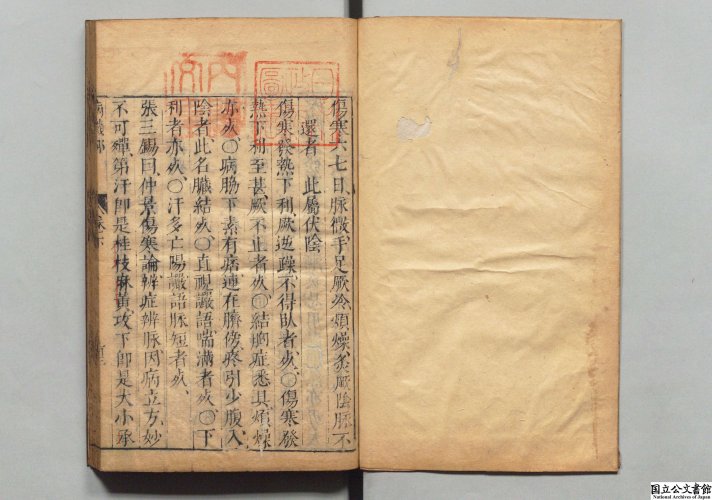 傷寒六七日脉微手足厥冷煩燥灸厥陰脉不
還者 此屬伏陰
傷寒發熱下利厥逆躁不得臥者死〇傷寒發
熱下利至甚厥不止者死〇結胸症悉具煩燥
亦死〇病脇下素有病連在臍傍疼引少腹入
陰者此名臟結死〇直視讝語喘滿者死〇下
利者亦死〇汗多亡陽讝語脉短者死
張三錫曰仲景傷寒論辨症辨脉因病立方妙
不可殫第汗即是桂枝麻黃攻下即是大小承
國立公文書館
National Archives of Japan